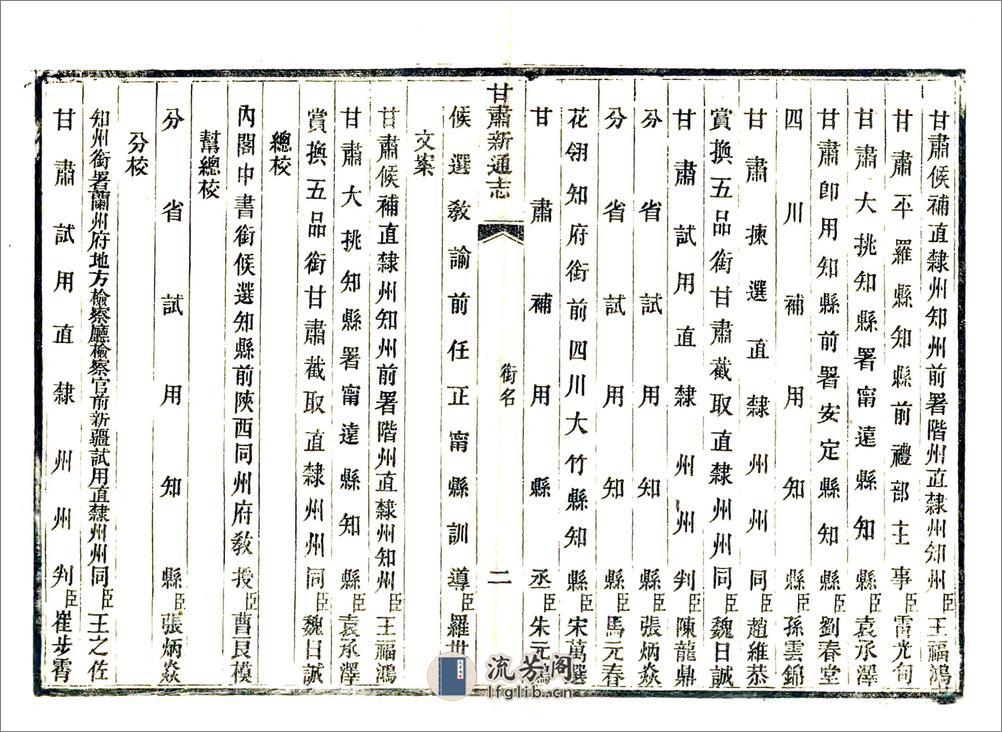 甘肅候補直隸州知州前署階州直隸州知州臣王福鴻
甘肅平羅縣知縣前禮部主事臣雷光甸
甘肅大挑知縣署甯遠縣知縣臣袁承澤
甘肅即用知縣前署安定縣知縣臣劉春堂
四川補用知縣臣孫雲錦
甘肅揀選直隸州州同臣趙維恭
賞換五品銜甘肅截取直隸州州同臣魏日誠
甘肅試用直隸州州判臣陳龍鼎
分省試用知縣臣張炳焱
分省試用知縣臣馬元春
花翎知府銜前四川大竹縣知縣臣宋萬選
甘肅補用縣丞臣朱元
甘肅新通志
銜名
二
候選教諭前任正甯縣訓導臣羅世
文案
甘肅候補直隸州知州前署階州直隸州知州臣王福鴻
甘肅大挑知縣署甯遠縣知縣臣袁承澤
賞換五品銜甘肅截取直隸州州同臣魏日誠
總校
內閣中書銜候選知縣前陝西同州府教授臣曹良模
幫總校
分省試用知縣臣張炳焱
分校
知州銜署蘭州府地方檢察廳檢察官前新疆試用直隸州州同臣王之佐
甘肅試用直隸州州判臣崔步霄
流芳閣
lfglib.cn